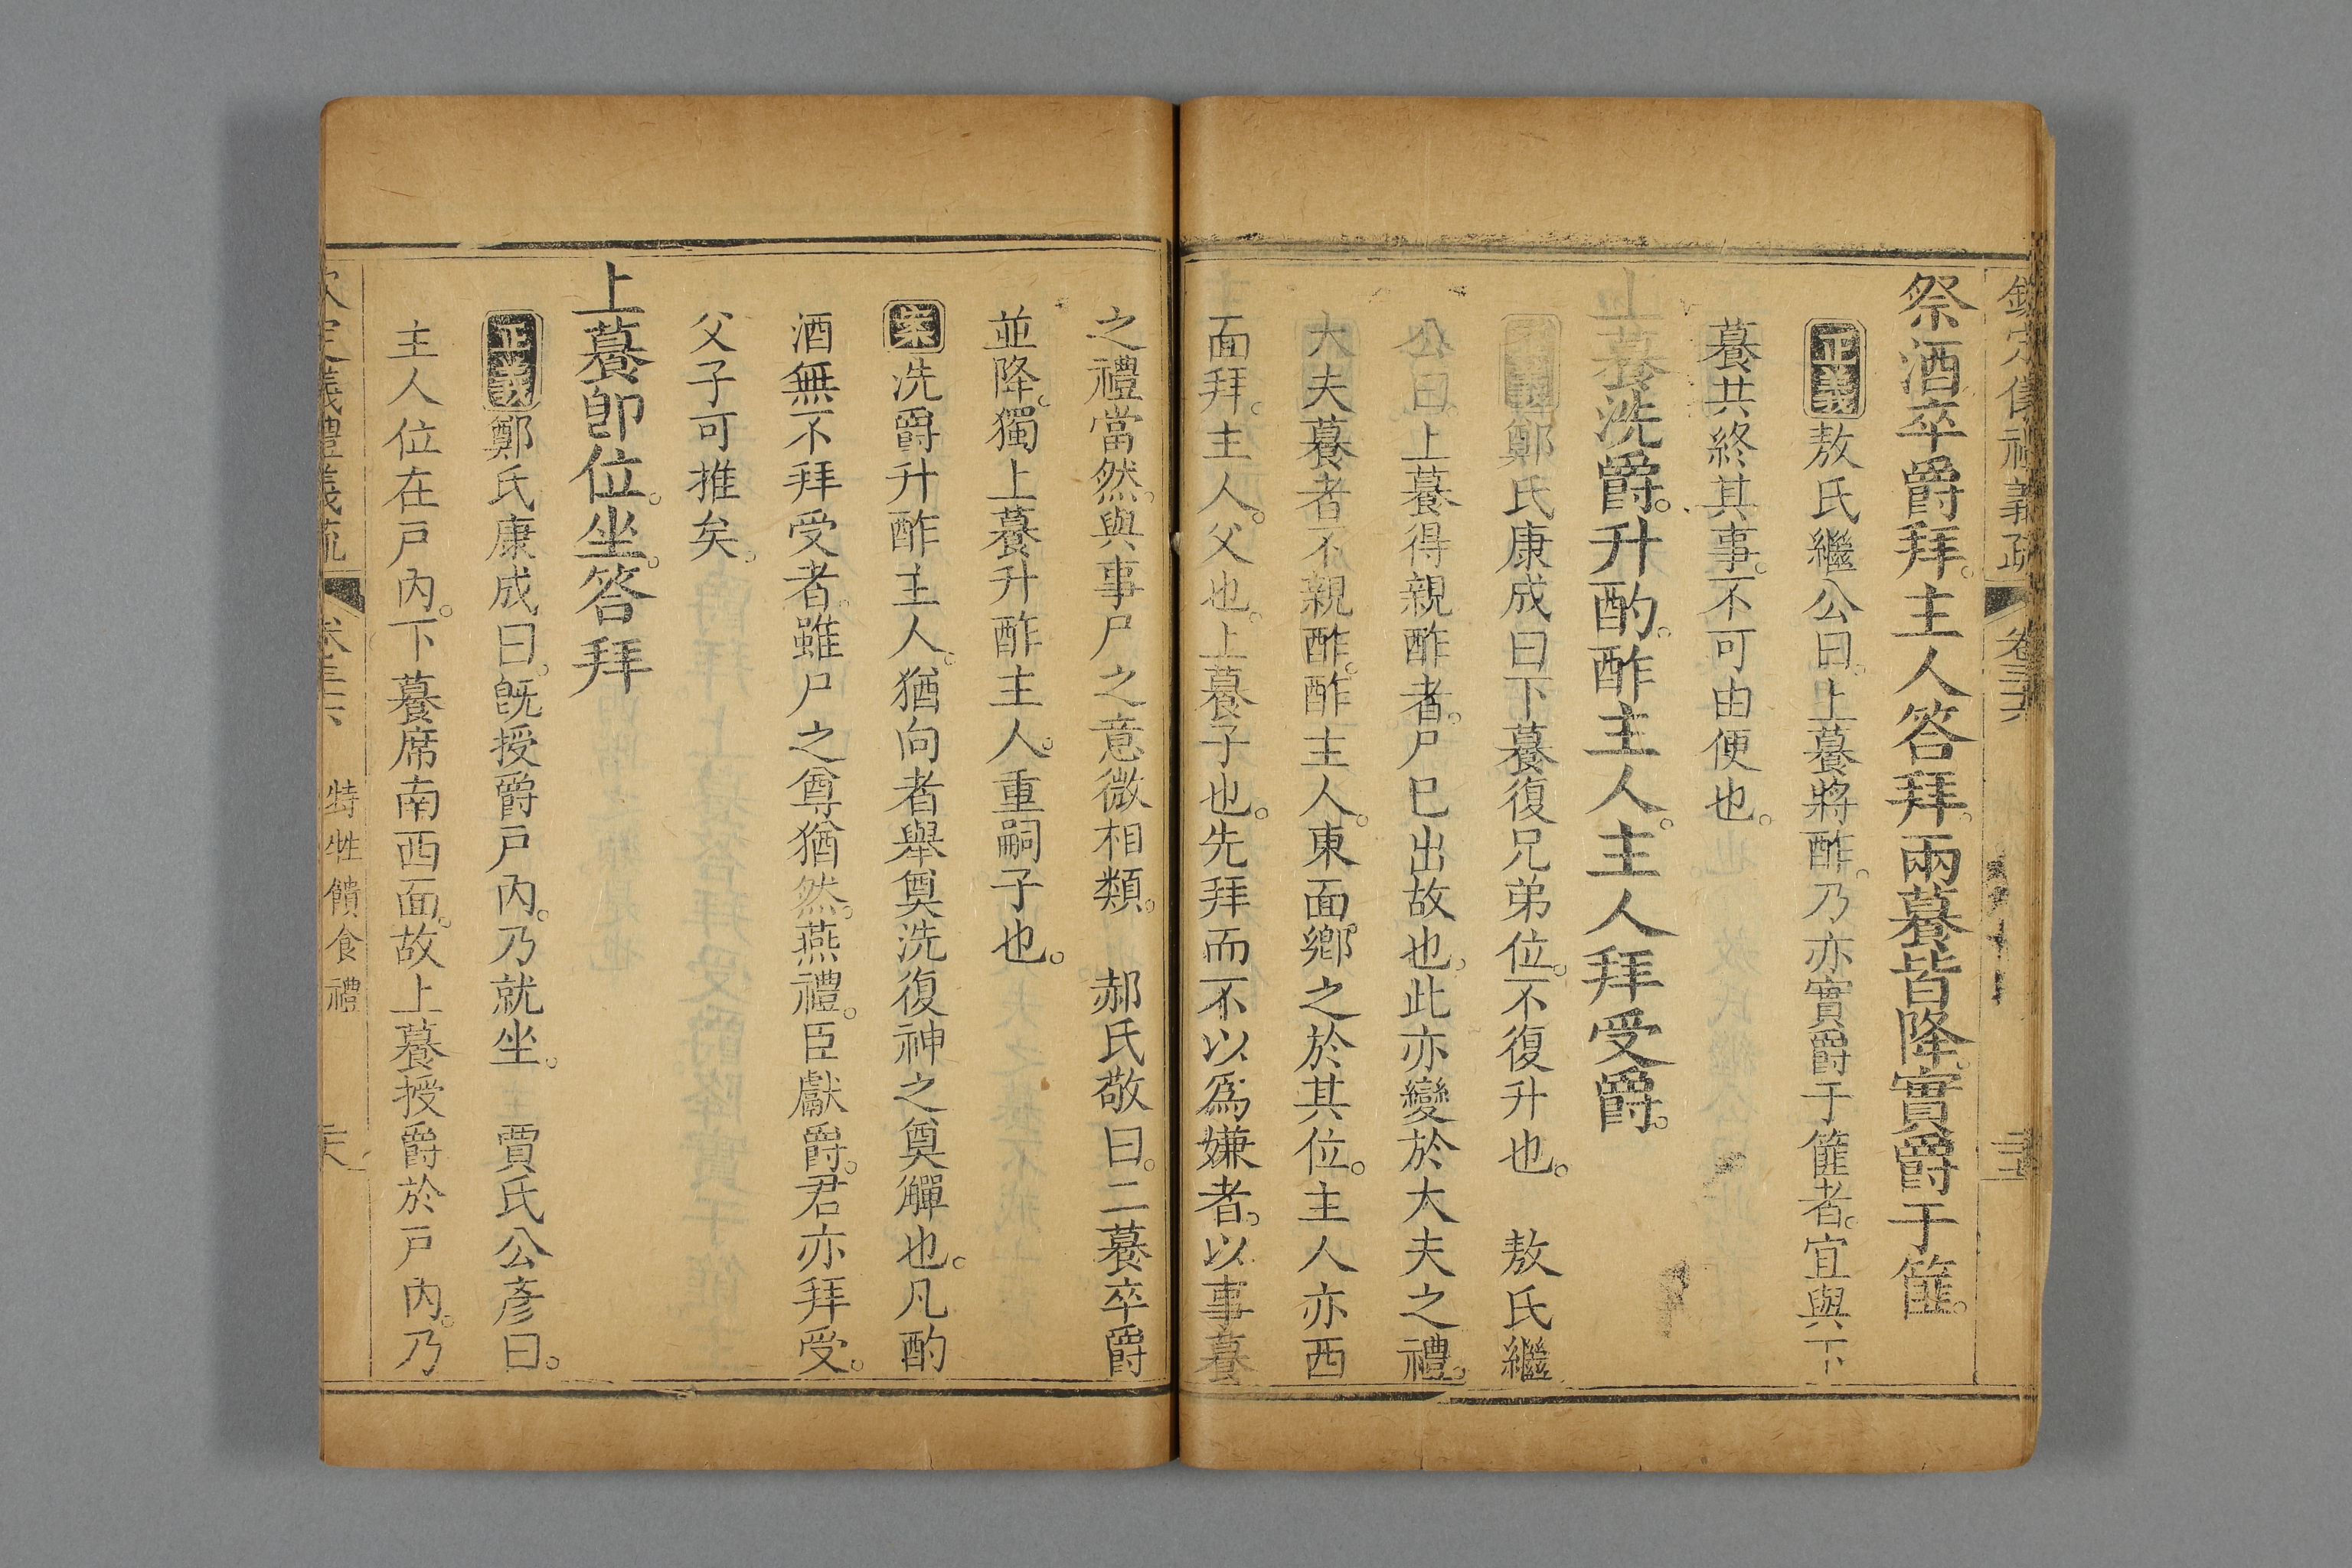 欽定儀禮義疏 卷三十六
祭酒卒爵拜。主人答拜。兩䬸皆降。實爵于篚。
正義敖氏繼公曰。上䬸將酢。乃亦實爵于篚者。宜與下
䬸共終其事。不可由便也。
上䬸洗爵。升酌。酢主人。主人拜受爵。
正義鄭氏康成曰下䬸復兄弟位。不復升也。 敖氏繼
公曰。上䬸得親酢者。尸已出故也。此亦變於大夫之禮。
大夫䬸者不親酢。酢主人。東面。鄉之於其位。主人亦西
面拜。主人。父也。上䬸子也。先拜而不以為嫌者。以事䬸
之禮當然。與事尸之意微相類。 郝氏敬曰。二䬸卒爵
並降。獨上䬸升酢主人。重嗣子也。
案洗爵升酢主人。猶向者舉奠洗復神之奠觶也。凡酌
酒無不拜受者。雖尸之尊猶然。燕禮。臣獻爵。君亦拜受。
父子可推矣。
上䬸卽位。坐。答拜
正義鄭氏康成曰。旣授爵戶內。乃就坐。 賈氏公彥曰。
主人位在戶內。下䬸席南西面。故上䬸授爵於戶內。乃
欽定儀禮義疏 卷三十六 特牲饋食禮